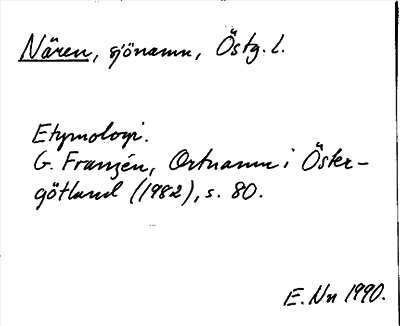 Nären, sjönamn, Östg. l.
Etymologi.
G. Franzén, Ortnamn i Öster-
götland (1982), s. 80.
E. Nn 1990.